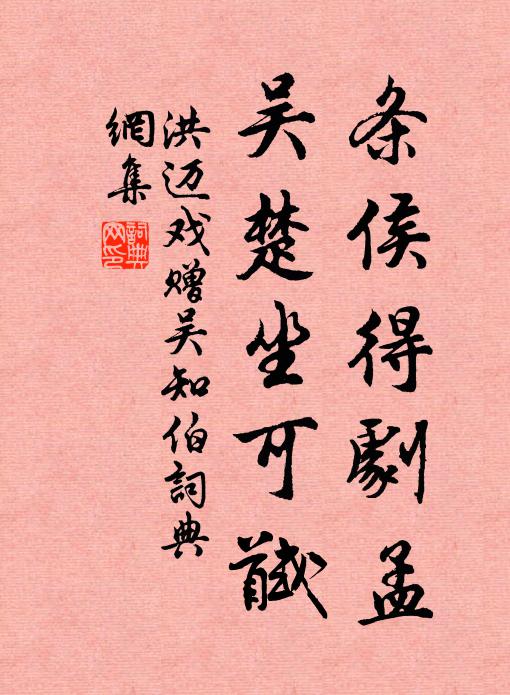 条侯得劇孟
吴楚坐可馘
洪迈戏赠吴知伯詞典
網集
詞典
网印